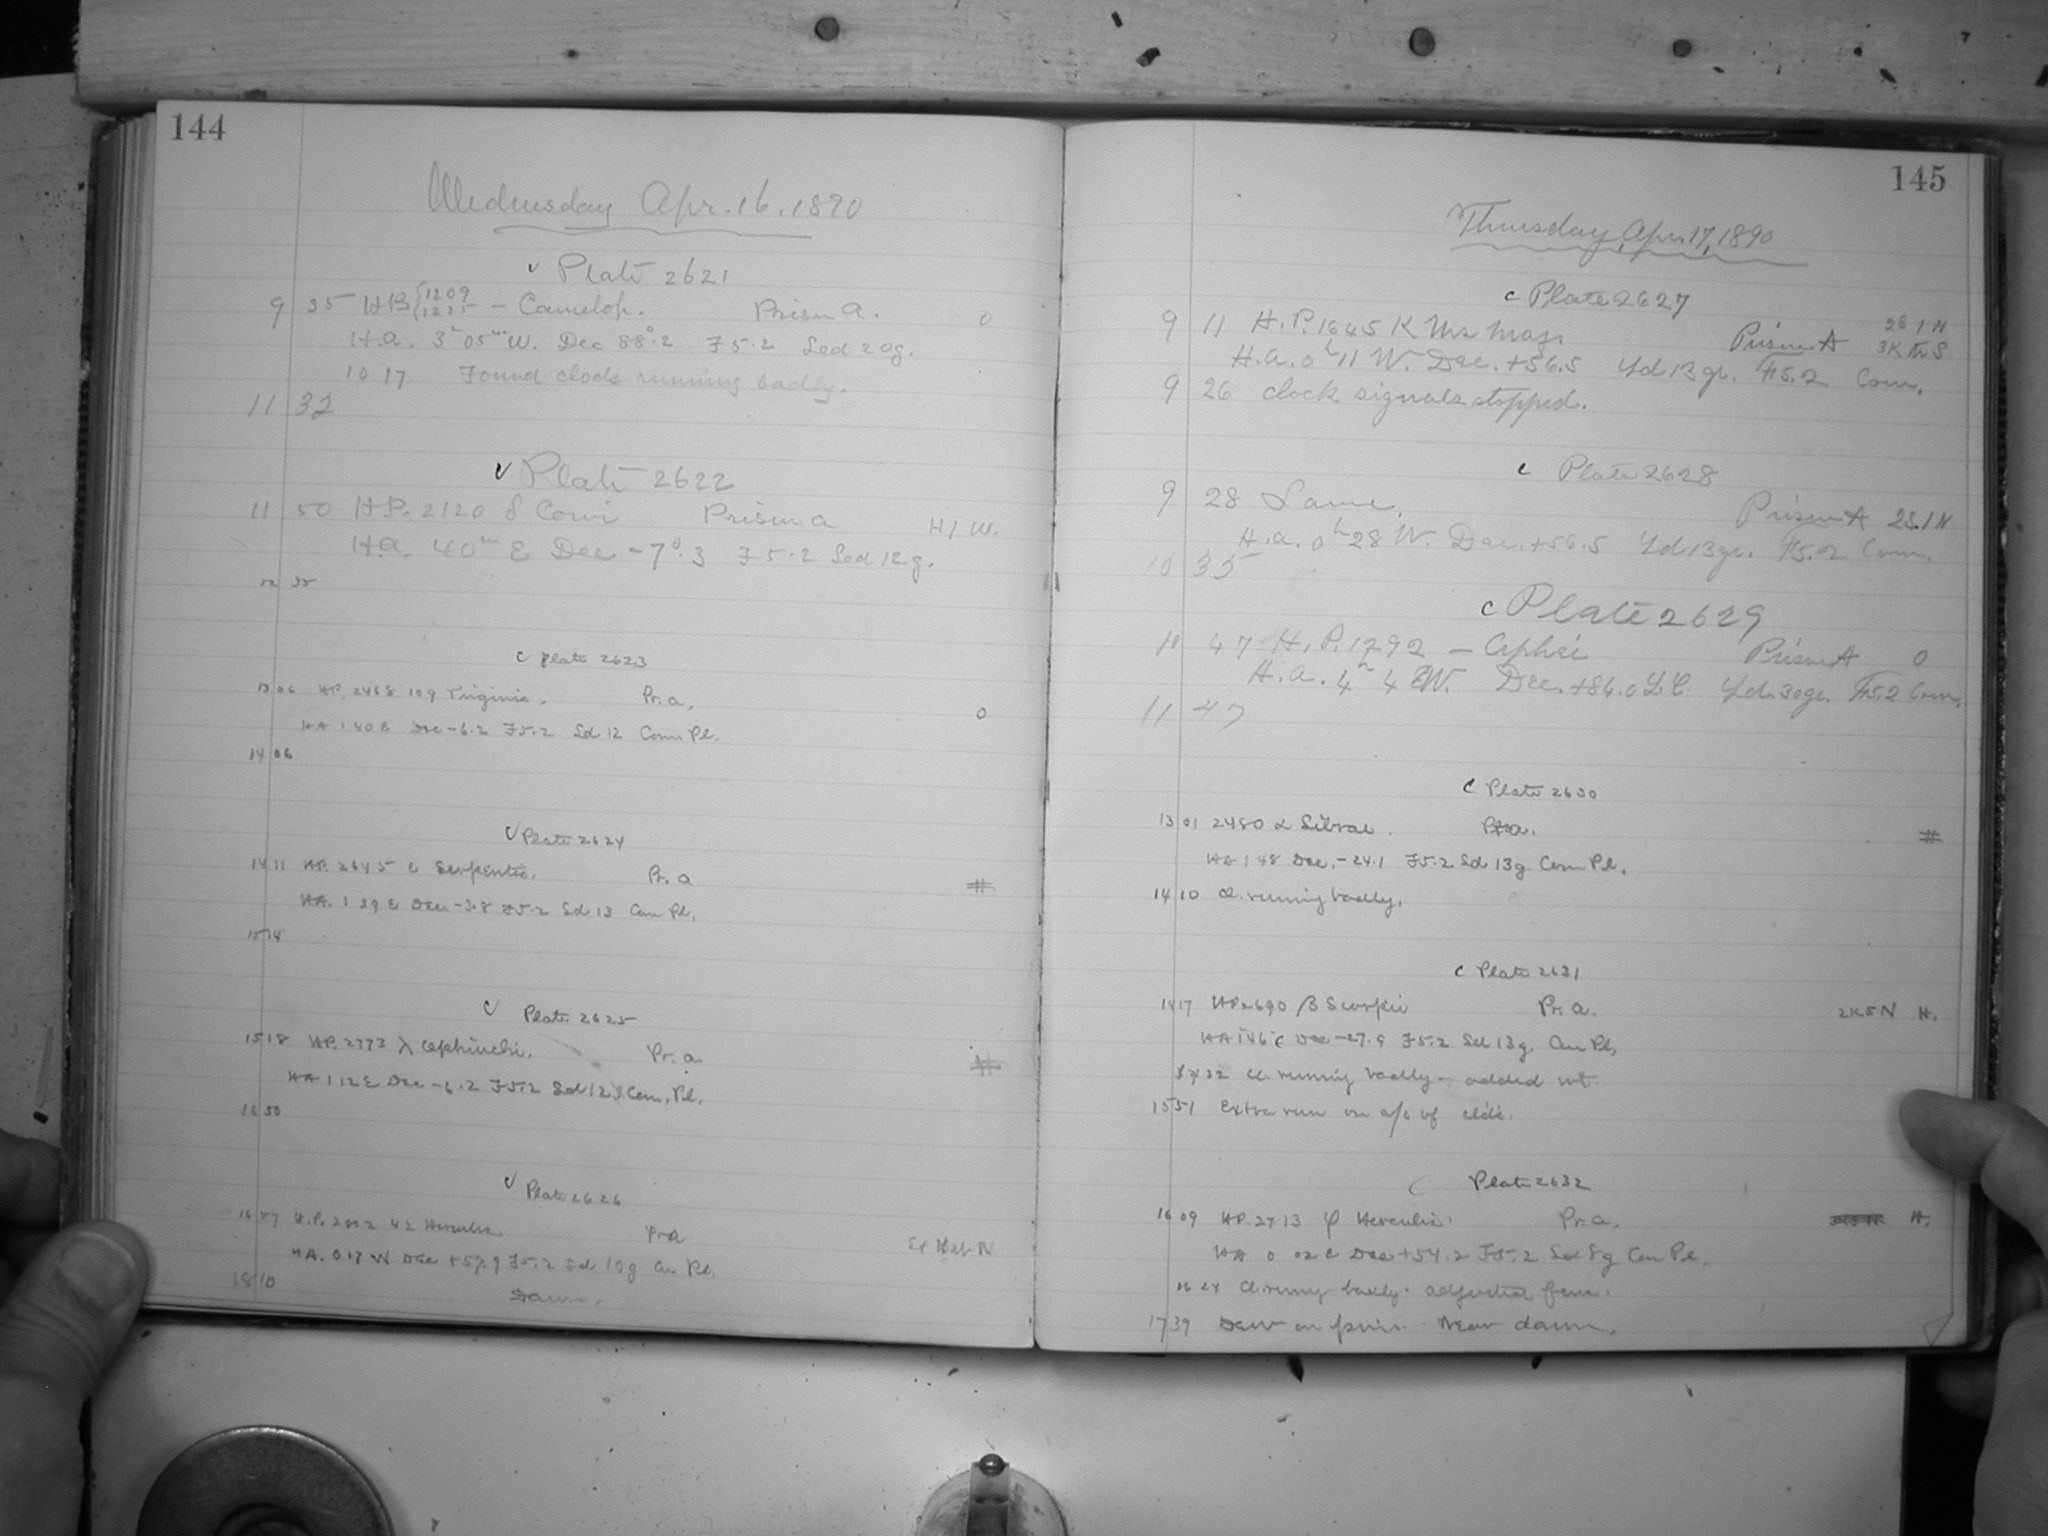 144
Wednesday Apr. 16. 1890
Plate 2621
9 35 HP {1209 1225 - Camelop. Prism a. 0
H.a. 3h 05m W. Dec 88°.2 F5.2 Sed 20g.
10 17 Found clock running badly.
11 32
Plate 2622
11 50 H.P. 2120 δ Corvi Prism a H 1 W.
H.a. 40m E Dec -7°.3 F5.2 Sed 12g.
12 55
c Plate 2623
13 06 HP. 2468 109 Virginis. Pr. a. 0
HA 1 40 E Dec -6.2 F5.2 Sd 12 Com. Pl.
14 06
Plate 2624
14 11 HP. 2645 Serpentis. Pr. a #
HA. 1 39 E Dec. -3.8 F5.2 Sd 13 Com Pl.
15 14
Plate 2625
15 18 HP. 2773 λ Ophiuchi. Pr. a. #
HA 1 12 E Dec -6.2 F5.2 Sd 12 Com. Pl.
16 50
Plate 2626
16 57 H.P. 42 Herculis Pr a N
HA. 0 17 W Dec +57.9 F5.2 Sd 10g Pl.
18 10 Dawn.
145
Thursday, Apr. 17, 1890
c Plate 2627
9 11 H.P. 1645 Urs Maj. Prism A
H.a. 0h 11 W. Dec. +56.5 13gr. F5.2 Com.
9 26 clock signals stopped.
c Plate 2628
9 28 Same. Prism A
H.a. 0h 28 W. Dec. +56.5 13gr. F5.2 Com.
10 35
c Plate 2629
10 47 H.P. 1292 - Cephei Prism A 0
H.a. 4h 4 W. Dec. +84.0 L.C. 30gr. F5.2 Com.
11 47
c Plate 2630
13 01 2480 Librae. Pr a. #
HA 1 48 Dec. -24.1 F5.2 Sd 13g Com Pl.
14 10 Cl. running badly.
c Plate 2631
14 17 HP 2690 β Scorpii Pr. a. 2K5N H.
HA 1 46 E Dec -27.9 F5.2 Sd 13g. Com Pl.
32 Cl. running badly - added wt.
15 51 Extra run on a/c of clds.
Plate 2632
16 09 HP. 2713 φ Herculis. Pr. a. H.
HA 0 02 E Dec +54.2 F5.2 Sd 8g Com Pl.
16 24 Cl. runng badly. adjusted
17 39 Dew on pris. Near dawn.